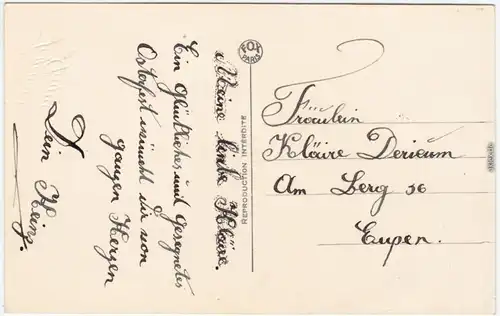 Meine liebe Kläre.
Ein glückliches und gesegnetes
Osterfest wünscht dir von
ganzen Herzen
Dein Heinz.
FOX
PARIS
REPRODUCTION INTERDITE
Fräulein
Kläire Derieum
Am Berg 56
Eupen.